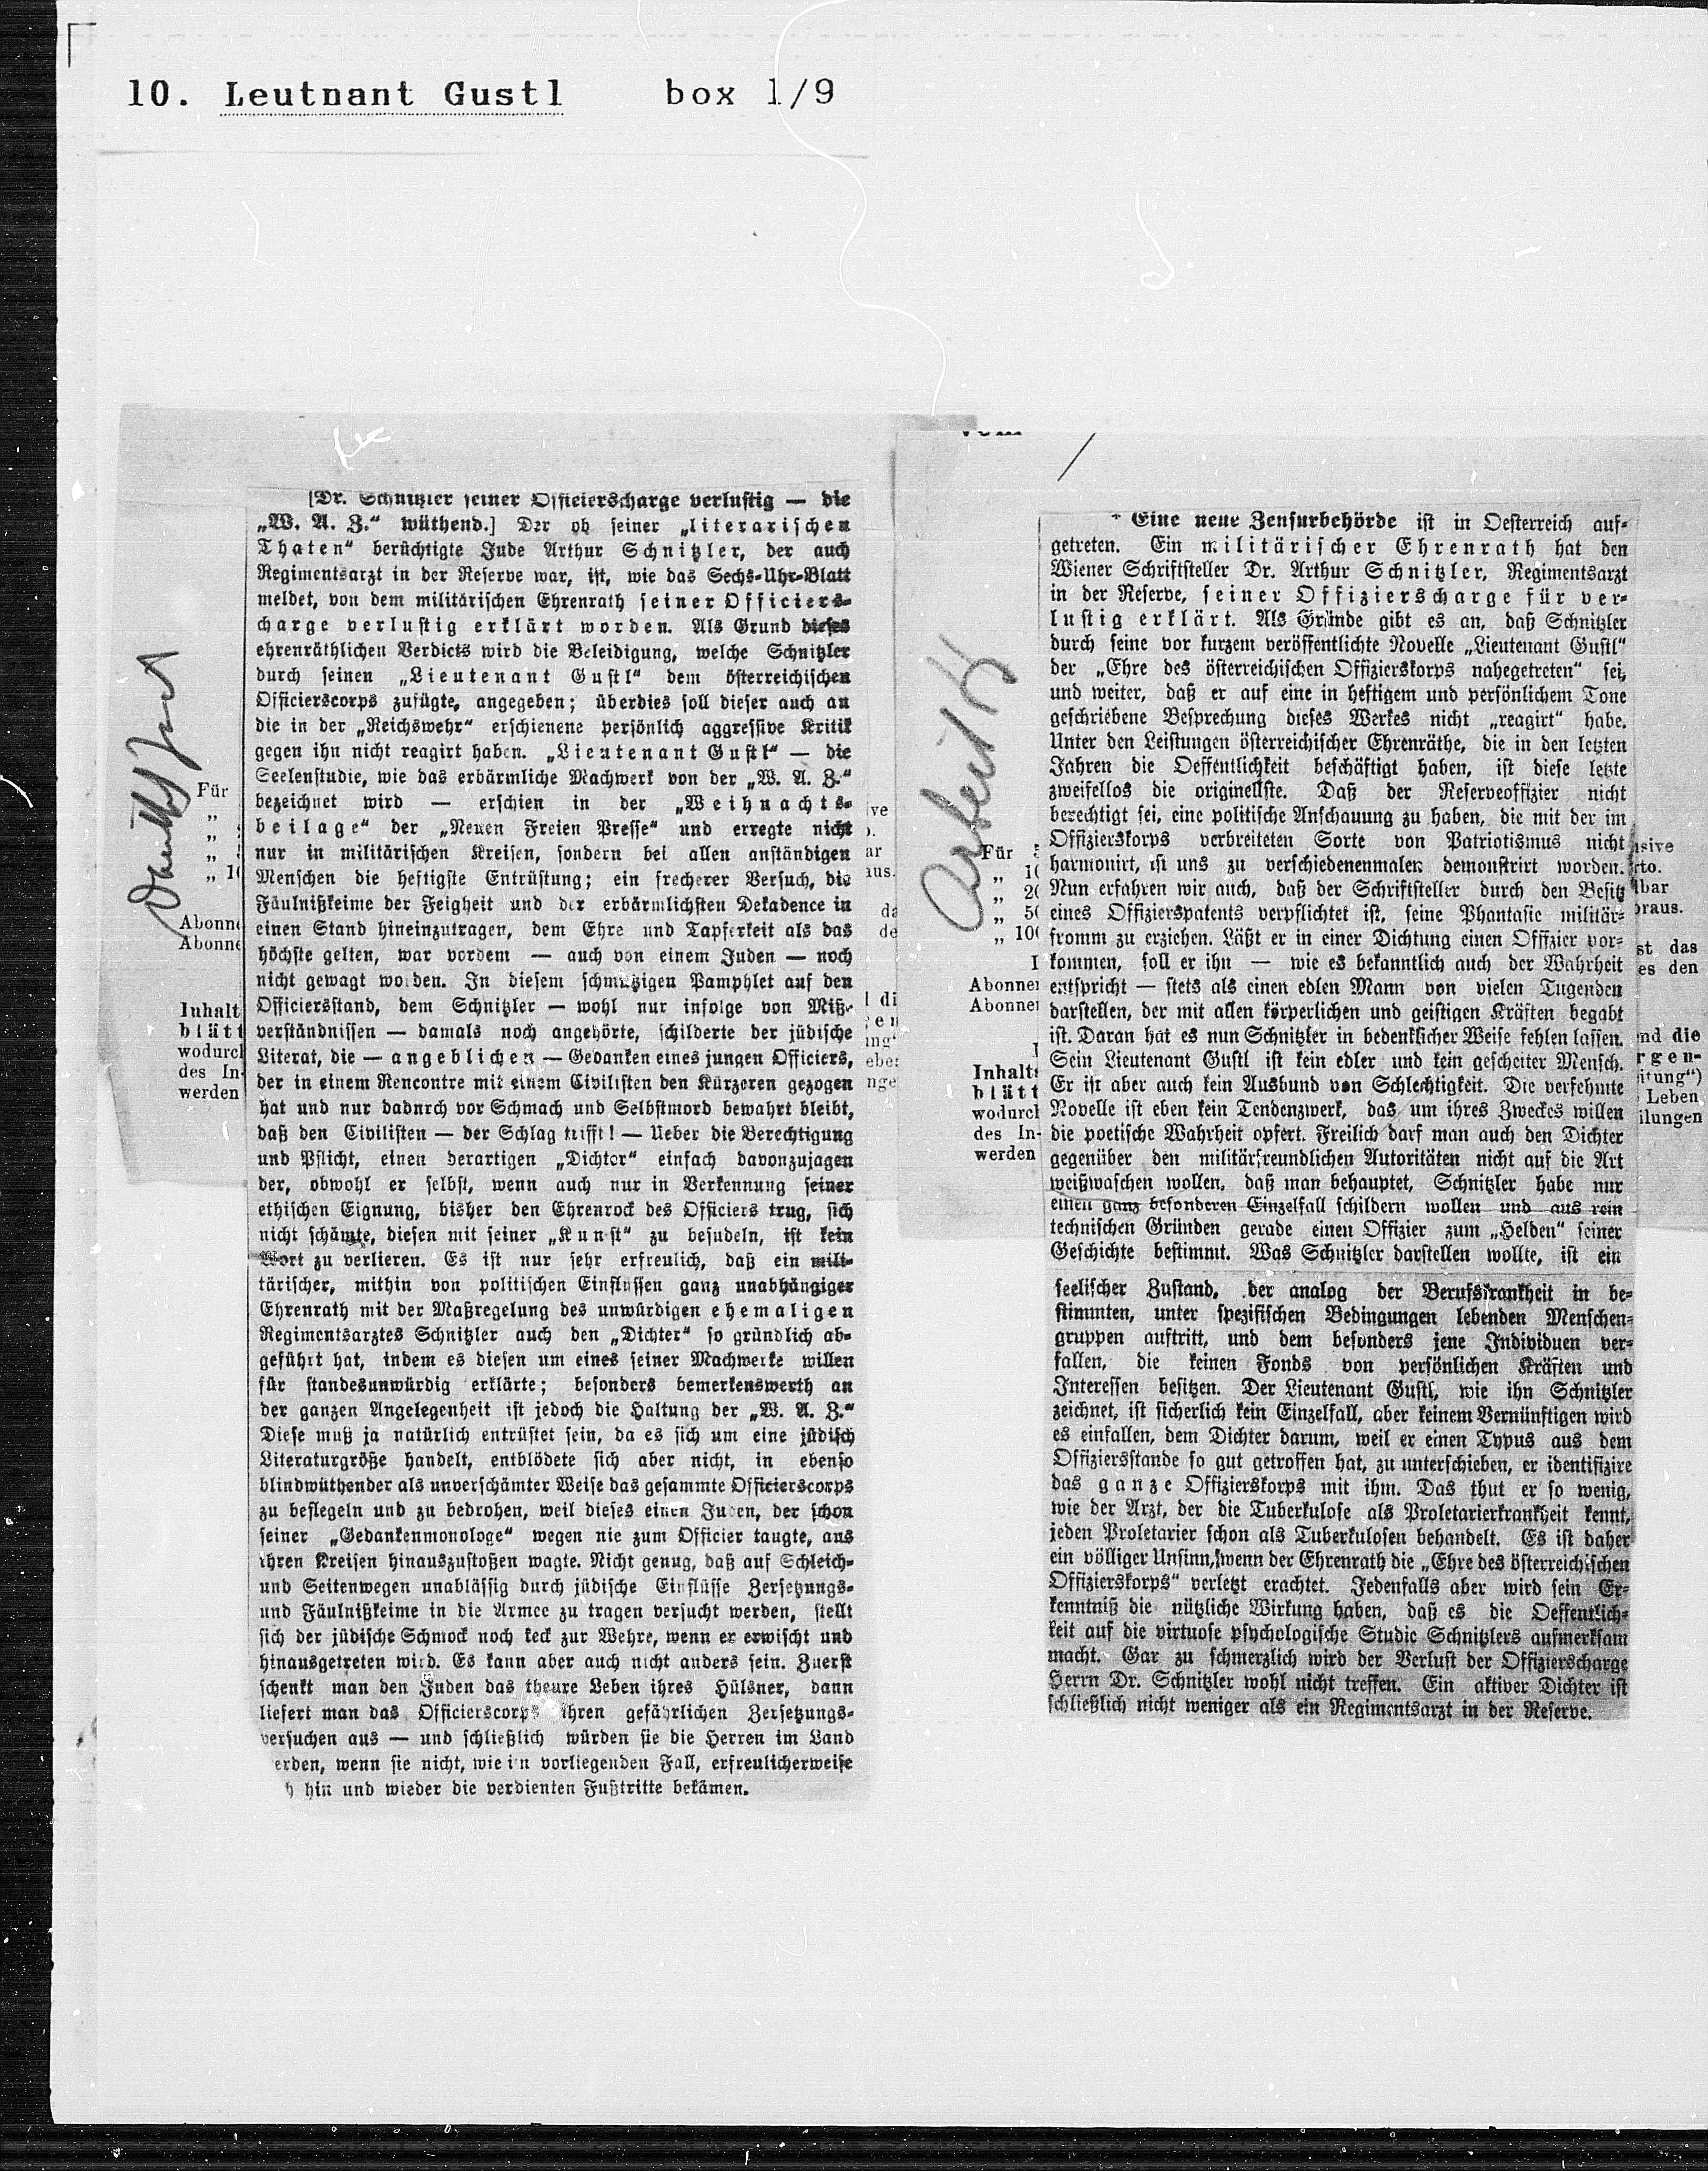 10. Leutnant Gustl box 1/9
[Dr. Schnitzler seiner Officierscharge verlustig — die
„W. A. Z.“ wüthend.] Der ob seiner „literarischen
Thaten“ berüchtigte Jude Arthur Schnitzler, der auch
Regimentsarzt in der Reserve war, ist, wie das Sechs-Uhr-Blatt
meldet, von dem militärischen Ehrenrath seiner Officiers-
charge verlustig erklärt worden. Als Grund dieses
ehrenräthlichen Verdicts wird die Beleidigung, welche Schnitzler
durch seinen „Lieutenant Gustl“ dem österreichischen
Officierscorps zufügte, angegeben; überdies soll dieser auch an
die in der „Reichswehr“ erschienene persönlich aggressive Kritik
gegen ihn nicht reagirt haben. „Lieutenant Gustl“ — die
Seelenstudie, wie das erbärmliche Machwerk von der „W. A. Z.“
bezeichnet wird — erschien in der „Weihnachts-
beilage“ der „Neuen Freien Presse“ und erregte nicht
nur in militärischen Kreisen, sondern bei allen anständigen
Menschen die heftigste Entrüstung; ein frecherer Versuch, die
Fäulnißkeime der Feigheit und der erbärmlichsten Dekadence in
einen Stand hineinzutragen, dem Ehre und Tapferkeit als das
höchste gelten, war vordem — auch von einem Juden — noch
nicht gewagt worden. In diesem schmutzigen Pamphlet auf den
Officiersstand, dem Schnitzler — wohl nur infolge von Miß-
verständnissen — damals noch angehörte, schilderte der jüdische
Literat, die — angeblichen — Gedanken eines jungen Officiers,
der in einem Rencontre mit einem Civilisten den Kürzeren gezogen
hat und nur dadurch vor Schmach und Selbstmord bewahrt bleibt,
daß den Civilisten — der Schlag trifft! — Ueber die Berechtigung
und Pflicht, einen derartigen „Dichter“ einfach davonzujagen
der, obwohl er selbst, wenn auch nur in Verkennung seiner
ethischen Eignung, bisher den Ehrenrock des Officiers trug, sich
nicht schämte, diesen mit seiner „Kunst“ zu besudeln, ist kein
Wort zu verlieren. Es ist nur sehr erfreulich, daß ein mili-
tärischer, mithin von politischen Einflüssen ganz unabhängiger
Ehrenrath mit der Maßregelung des unwürdigen ehemaligen
Regimentsarztes Schnitzler auch den „Dichter“ so gründlich ab-
geführt hat, indem es diesen um eines seiner Machwerke willen
für standesunwürdig erklärte; besonders bemerkenswerth an
der ganzen Angelegenheit ist jedoch die Haltung der „W. A. Z.“
Diese muß ja natürlich entrüstet sein, da es sich um eine jüdisch
Literaturgröße handelt, entblödete sich aber nicht, in ebenso
blindwüthender als unverschämter Weise das gesammte Officierscorps
zu beflegeln und zu bedrohen, weil dieses einen Juden, der schon
seiner „Gedankenmonologe“ wegen nie zum Officier taugte, aus
ihren Kreisen hinauszustoßen wagte. Nicht genug, daß auf Schleich-
und Seitenwegen unablässig durch jüdische Einflüsse Zersetzungs-
und Fäulnißkeime in die Armee zu tragen versucht werden, stellt
sich der jüdische Schmock noch keck zur Wehre, wenn er erwischt und
hinausgetreten wird. Es kann aber auch nicht anders sein. Zuerst
schenkt man den Juden das theure Leben ihres Hülsner, dann
liefert man das Officierscorps ihren gefährlichen Zersetzungs-
versuchen aus — und schließlich würden sie die Herren im Land
erden, wenn sie nicht, wie im vorliegenden Fall, erfreulicherweise
h hin und wieder die verdienten Fußtritte bekämen.
Für
„
„
„
„ 1
Abonne
Abonne
Inhalt
blätt
wodurch
des In-
werden
* Eine neue Zensurbehörde ist in Oesterreich auf-
getreten. Ein militärischer Ehrenrath hat den
Wiener Schriftsteller Dr. Arthur Schnitzler, Regimentsarzt
in der Reserve, seiner Offizierscharge für ver-
lustig erklärt. Als Gründe gibt es an, daß Schnitzler
durch seine vor kurzem veröffentlichte Novelle „Lieutenant Gustl“
der „Ehre des österreichischen Offizierskorps nahegetreten“ sei,
und weiter, daß er auf eine in heftigem und persönlichem Tone
geschriebene Besprechung dieses Werkes nicht „reagirt“ habe.
Unter den Leistungen österreichischer Ehrenräthe, die in den letzten
Jahren die Oeffentlichkeit beschäftigt haben, ist diese letzte
zweifellos die originellste. Daß der Reserveoffizier nicht
berechtigt sei, eine politische Anschauung zu haben, die mit der im
Offizierskorps verbreiteten Sorte von Patriotismus nicht
harmonirt, ist uns zu verschiedenenmalen demonstrirt worden.
Nun erfahren wir auch, daß der Schriftsteller durch den Besitz
eines Offizierspatents verpflichtet ist, seine Phantasie militär-
fromm zu erziehen. Läßt er in einer Dichtung einen Offizier vor-
kommen, soll er ihn — wie es bekanntlich auch der Wahrheit
entspricht — stets als einen edlen Mann von vielen Tugenden
darstellen, der mit allen körperlichen und geistigen Kräften begabt
ist. Daran hat es nun Schnitzler in bedenklicher Weise fehlen lassen.
Sein Lieutenant Gustl ist kein edler und kein gescheiter Mensch.
Er ist aber auch kein Ausbund von Schlechtigkeit. Die verfehmte
Novelle ist eben kein Tendenzwerk, das um ihres Zweckes willen
die poetische Wahrheit opfert. Freilich darf man auch den Dichter
gegenüber den militärfreundlichen Autoritäten nicht auf die Art
weißwaschen wollen, daß man behauptet, Schnitzler habe nur
einen ganz besonderen Einzelfall schildern wollen und aus rein
technischen Gründen gerade einen Offizier zum „Helden“ seiner
Geschichte bestimmt. Was Schnitzler darstellen wollte, ist ein
seelischer Zustand, der analog der Berufskrankheit in be-
stimmten, unter spezifischen Bedingungen lebenden Menschen-
gruppen auftritt, und dem besonders jene Individuen ver-
fallen, die keinen Fonds von persönlichen Kräften und
Interessen besitzen. Der Lieutenant Gustl, wie ihn Schnitzler
zeichnet, ist sicherlich kein Einzelfall, aber keinem Vernünftigen wird
es einfallen, dem Dichter darum, weil er einen Typus aus dem
Offiziersstande so gut getroffen hat, zu unterschieben, er identifizire
das ganze Offizierskorps mit ihm. Das thut er so wenig,
wie der Arzt, der die Tuberkulose als Proletarierkrankheit kennt,
jeden Proletarier schon als Tuberkulosen behandelt. Es ist daher
ein völliger Unsinn, wenn der Ehrenrath die „Ehre des österreichischen
Offizierskorps“ verletzt erachtet. Jedenfalls aber wird sein Er-
kenntniß die nützliche Wirkung haben, daß es die Oeffentlich-
keit auf die virtuose psychologische Studie Schnitzlers aufmerksam
macht. Gar zu schmerzlich wird der Verlust der Offizierscharge
Herrn Dr. Schnitzler wohl nicht treffen. Ein aktiver Dichter ist
schließlich nicht weniger als ein Regimentsarzt in der Reserve.
Für
„ 10
„ 20
„ 50
„ 100
Abonne
Abonne
Inhalt
blätt
wodurch
des In-
werden